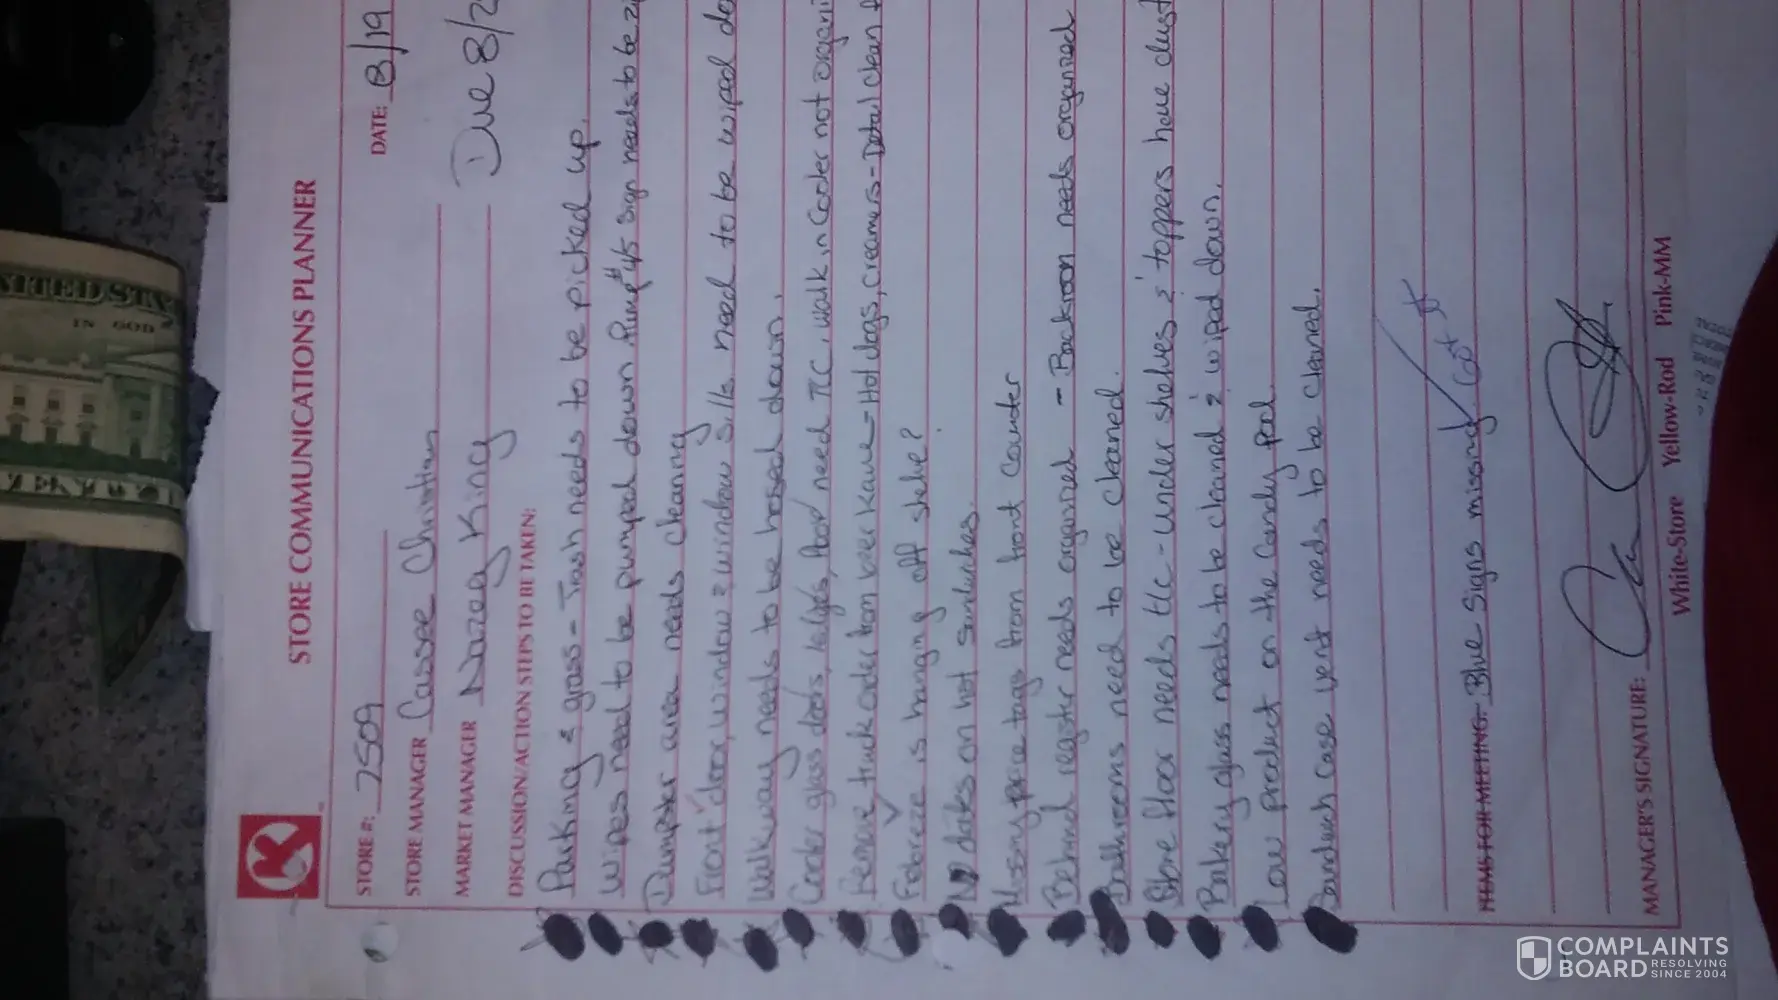 STORE COMMUNICATIONS PLANNER
STORE #: 7509
DATE: 8/19
STORE MANAGER Cassee Christian
MARKET MANAGER Nazey King Due 8/2
DISCUSSION/ACTION STEPS TO BE TAKEN:
Parking & grass - Trash needs to be picked up.
Wipes need to be pumped down Pump #4/5 sign needs to be
Dumpster area needs cleaning
Front door, window & window sills need to be wiped
Walkway needs to be hosed down.
Cooler glass doors, ledges, floor need TLC, walk in Cooler not
Remove truck order from beer kave - Hot dogs, creamers - Detail clean
Febreze is hanging off shelve?
No dates on hot sandwiches.
Missing price tags from front counter
Behind register needs organized - Backroom needs organized
Bathrooms need to be cleaned.
Store floor needs tlc - under shelves & toppers have dust
Bakery glass needs to be cleaned & wiped down.
Low product on the Candy pod.
Sandwich case vent needs to be cleaned.
ITEMS FOR MEETING: Blue Signs missing
MANAGER'S SIGNATURE:
White-Store Yellow-Rod Pink-MM
UNITED STA
IN GOD
COMPLAINTS
BOARD RESOLVING
SINCE 2004